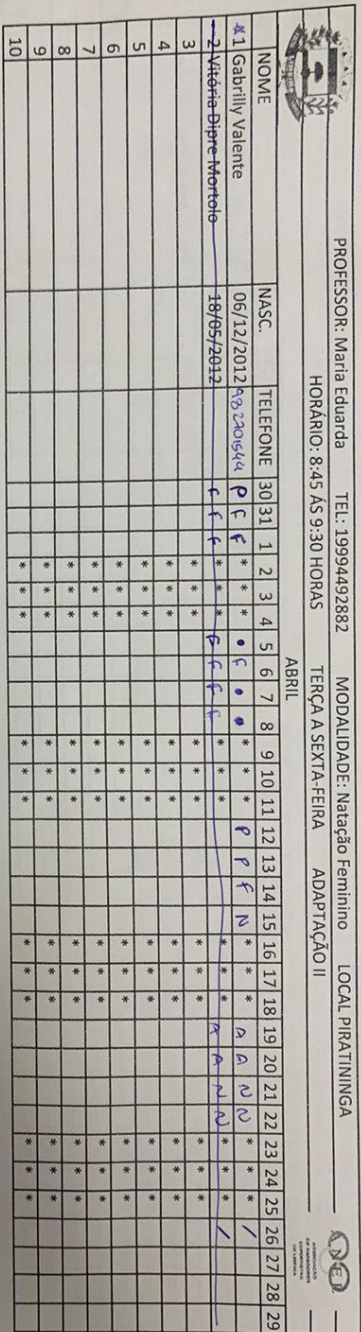 PROFESSOR: Maria Eduarda TEL: 19994492882 MODALIDADE: Natação Feminino LOCAL PIRATININGA
HORÁRIO: 8:45 ÁS 9:30 HORAS TERÇA A SEXTA-FEIRA ADAPTAÇÃO II
ABRIL
NOME NASC. TELEFONE 30 31 1 2 3 4 5 6 7 8 9 10 11 12 13 14 15 16 17 18 19 20 21 22 23 24 25 26 27 28 29
*1 Gabrilly Valente 06/12/2012 982701544 P F F * * * • F • • * * * P P F N * * * A A N N * * * /
2 Vitória Dipre Mortolo 18/05/2012 F F F * * * F F F F * * * * * * A A N N * * * /
3 * * * * * * * * * * * *
4 * * * * * * * * * * * *
5 * * * * * * * * * * * *
6 * * * * * * * * * * * *
7 * * * * * * * * * * * *
8 * * * * * * * * * * * *
9 * * * * * * * * * * * *
10 * * * * * * * * * * * *